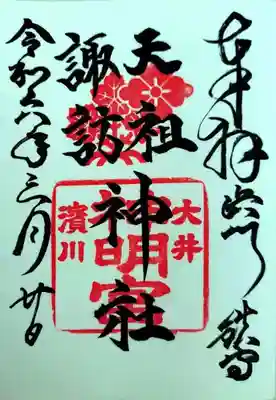 奉拝
天祖
諏訪
神社
大井
神明宮
濱川
令和六年三月廿日